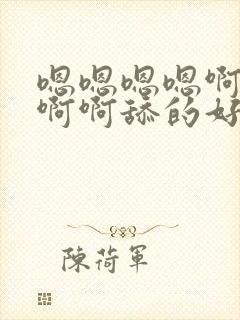 嗯嗯嗯嗯啊
啊啊舔的好
陳荷軍